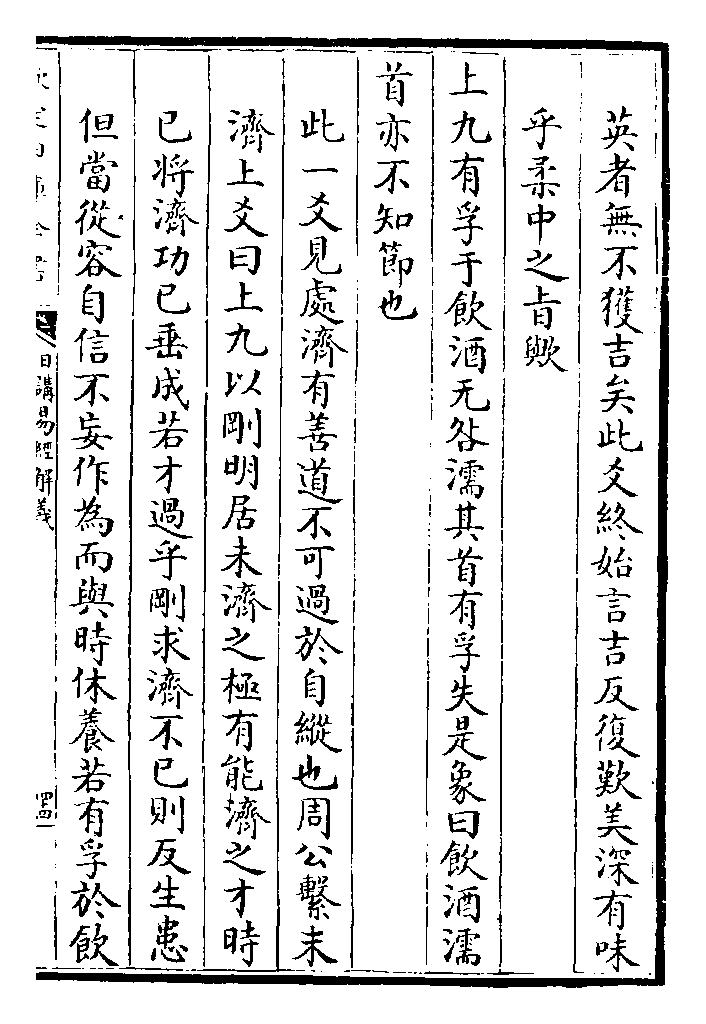 英者無不獲吉矣此爻終始言吉反復歎美深有味
乎柔中之旨歟
上九有孚于飲酒无咎濡其首有孚失是象曰飲酒濡
首亦不知節也
此一爻見處濟有善道不可過於自縱也周公繫未
濟上爻曰上九以剛明居未濟之極有能濟之才時
已將濟功已垂成若才過乎剛求濟不已則反生患
但當從容自信不妄作為而與時休養若有孚於飲
日講易經解義